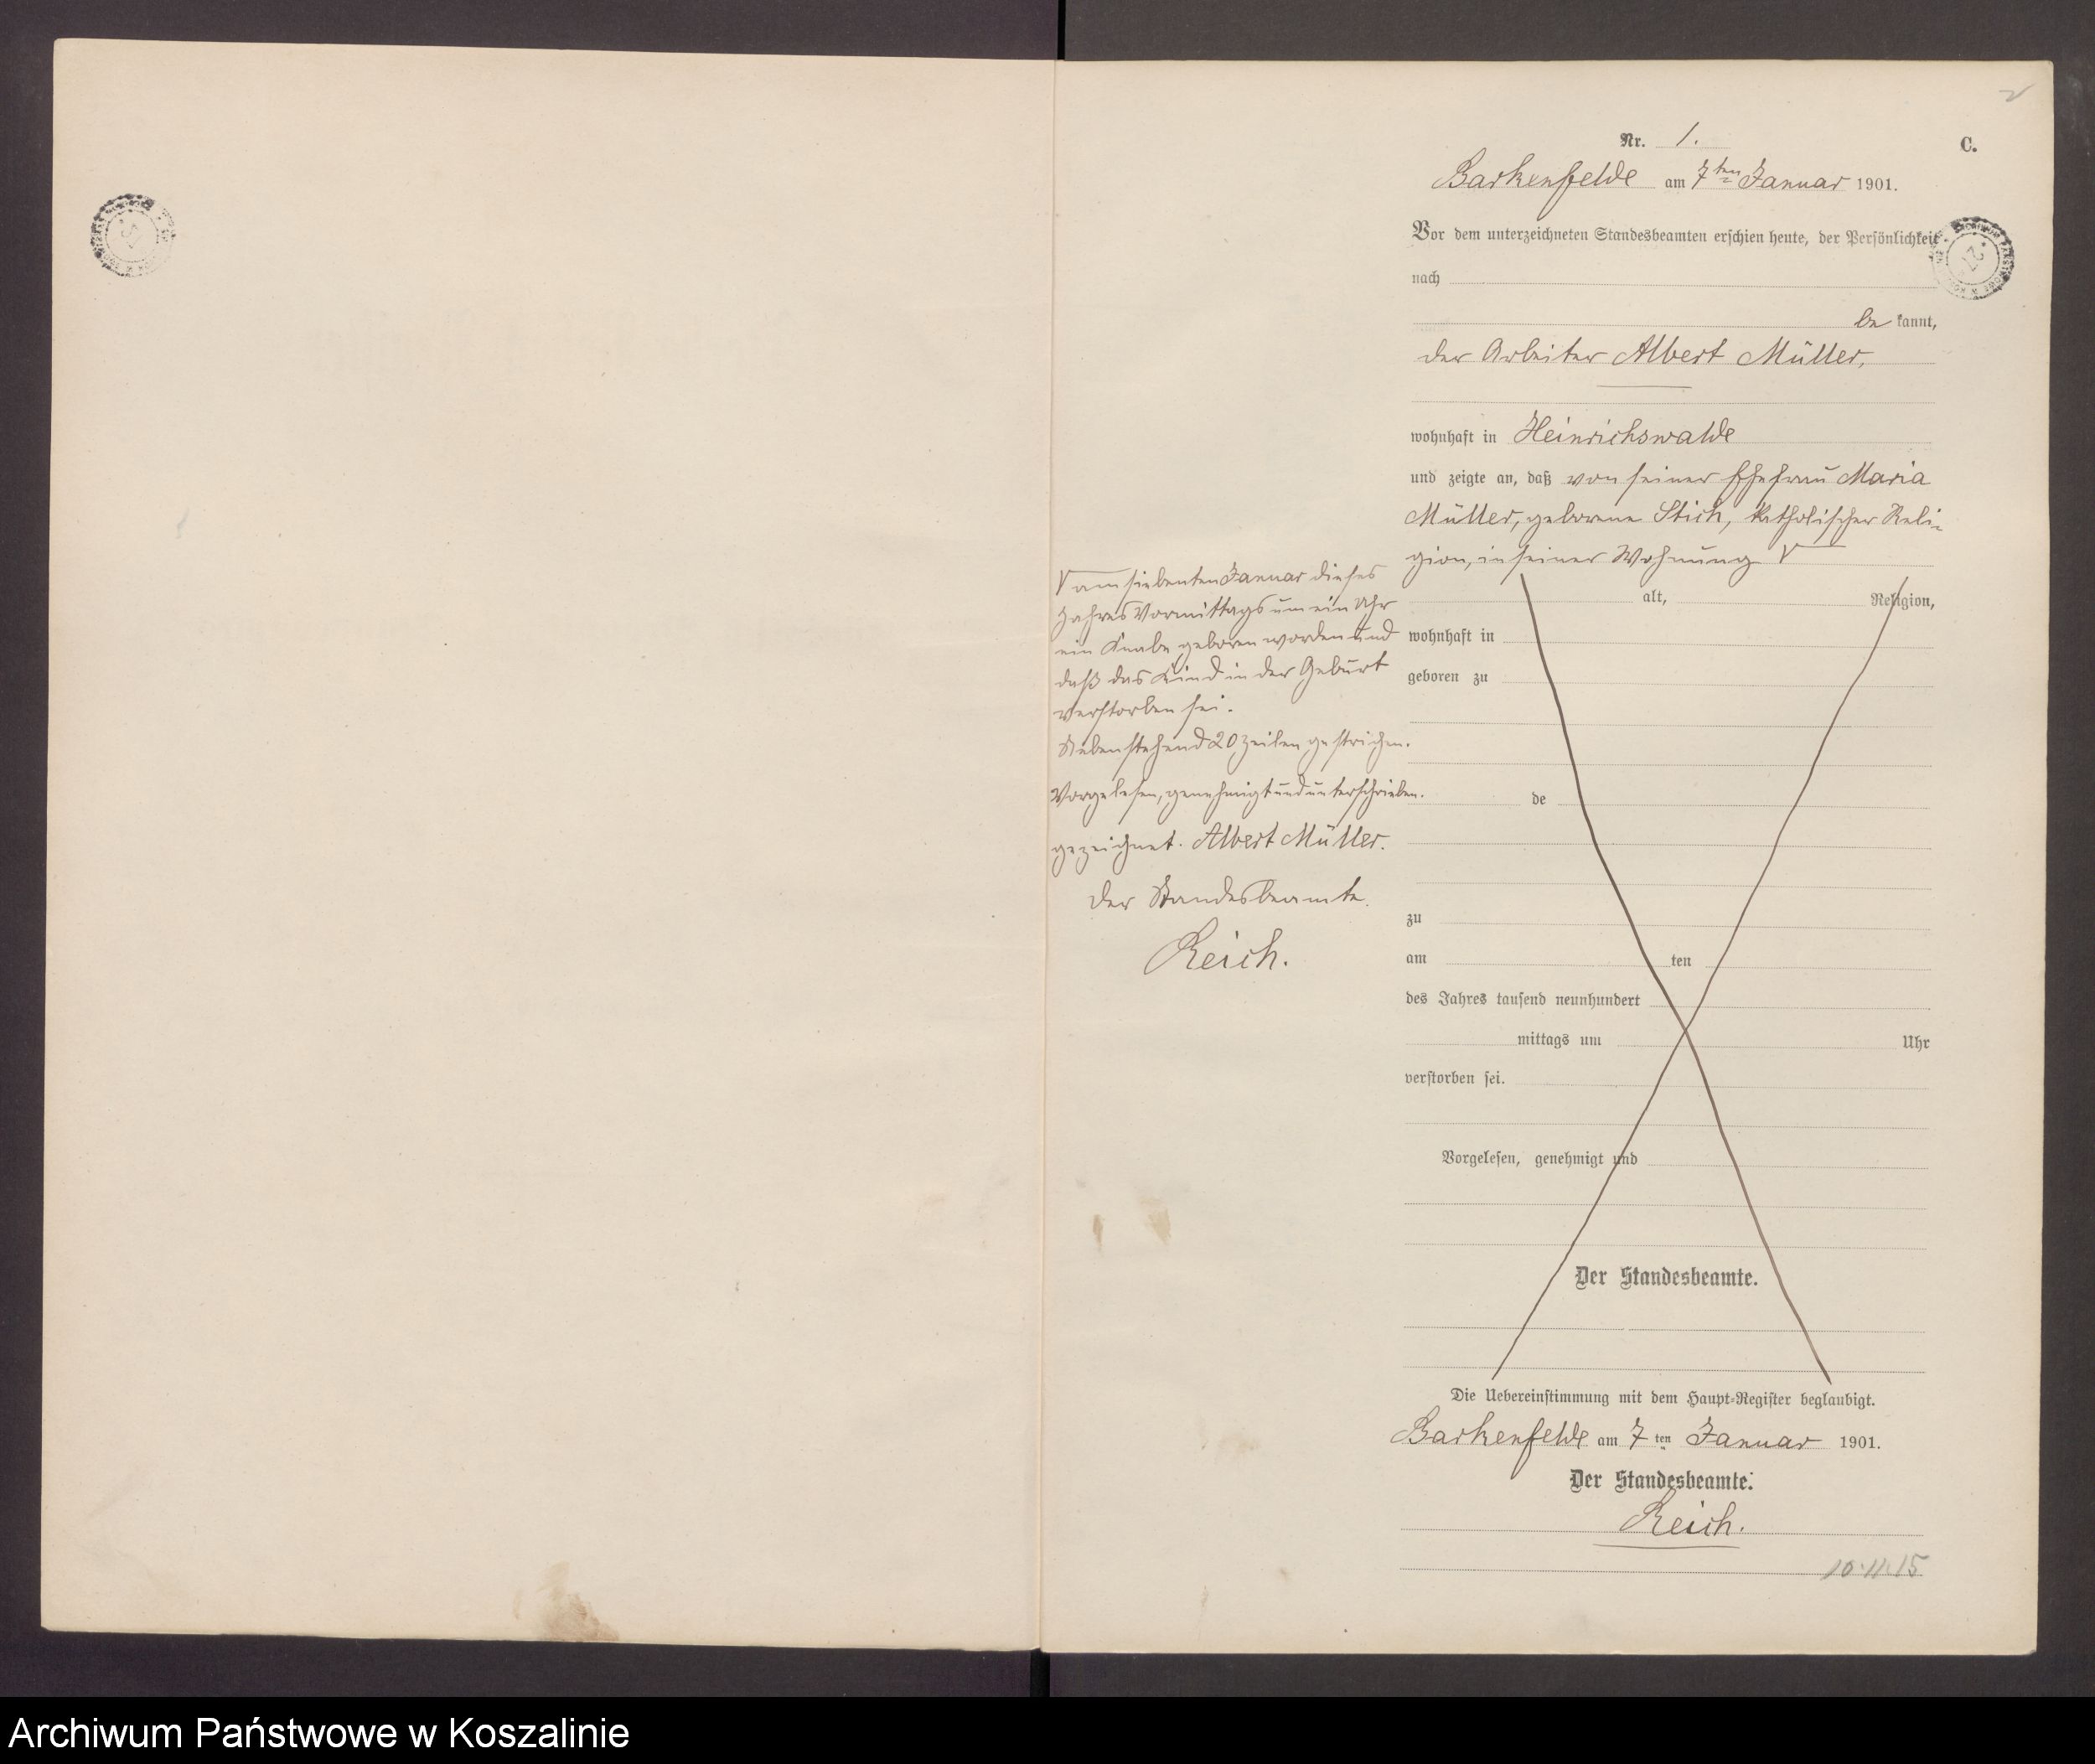 Nr. 1.
C.
Barkenfelde am 7ten Januar 1901.
Vor dem unterzeichneten Standesbeamten erschien heute, der Persönlichkeit
nach
be kannt,
der Arbeiter Albert Müller,
wohnhaft in Heinrichswalde
und zeigte an, daß von seiner Ehefrau Maria
Müller, geborene Stich, katholischer Reli-
gion, in seiner Wohnung
am siebenten Januar dieses
Jahres Vormittags um ein Uhr
ein Knabe geboren worden und
daß das Kind in der Geburt
verstorben sei.
Nebenstehend 20 Zeilen gestrichen.
Vorgelesen, genehmigt und unterschrieben.
gezeichnet. Albert Müller.
Der Standesbeamte.
Reich.
alt, Religion,
wohnhaft in
geboren zu
de
zu
am ten
des Jahres tausend neunhundert
mittags um Uhr
verstorben sei.
Vorgelesen, genehmigt und
Der Standesbeamte.
Die Uebereinstimmung mit dem Haupt-Register beglaubigt.
Barkenfelde am 7 ten Januar 1901.
Der Standesbeamte.
Reich.
10.11.15
Archiwum Państwowe w Koszalinie